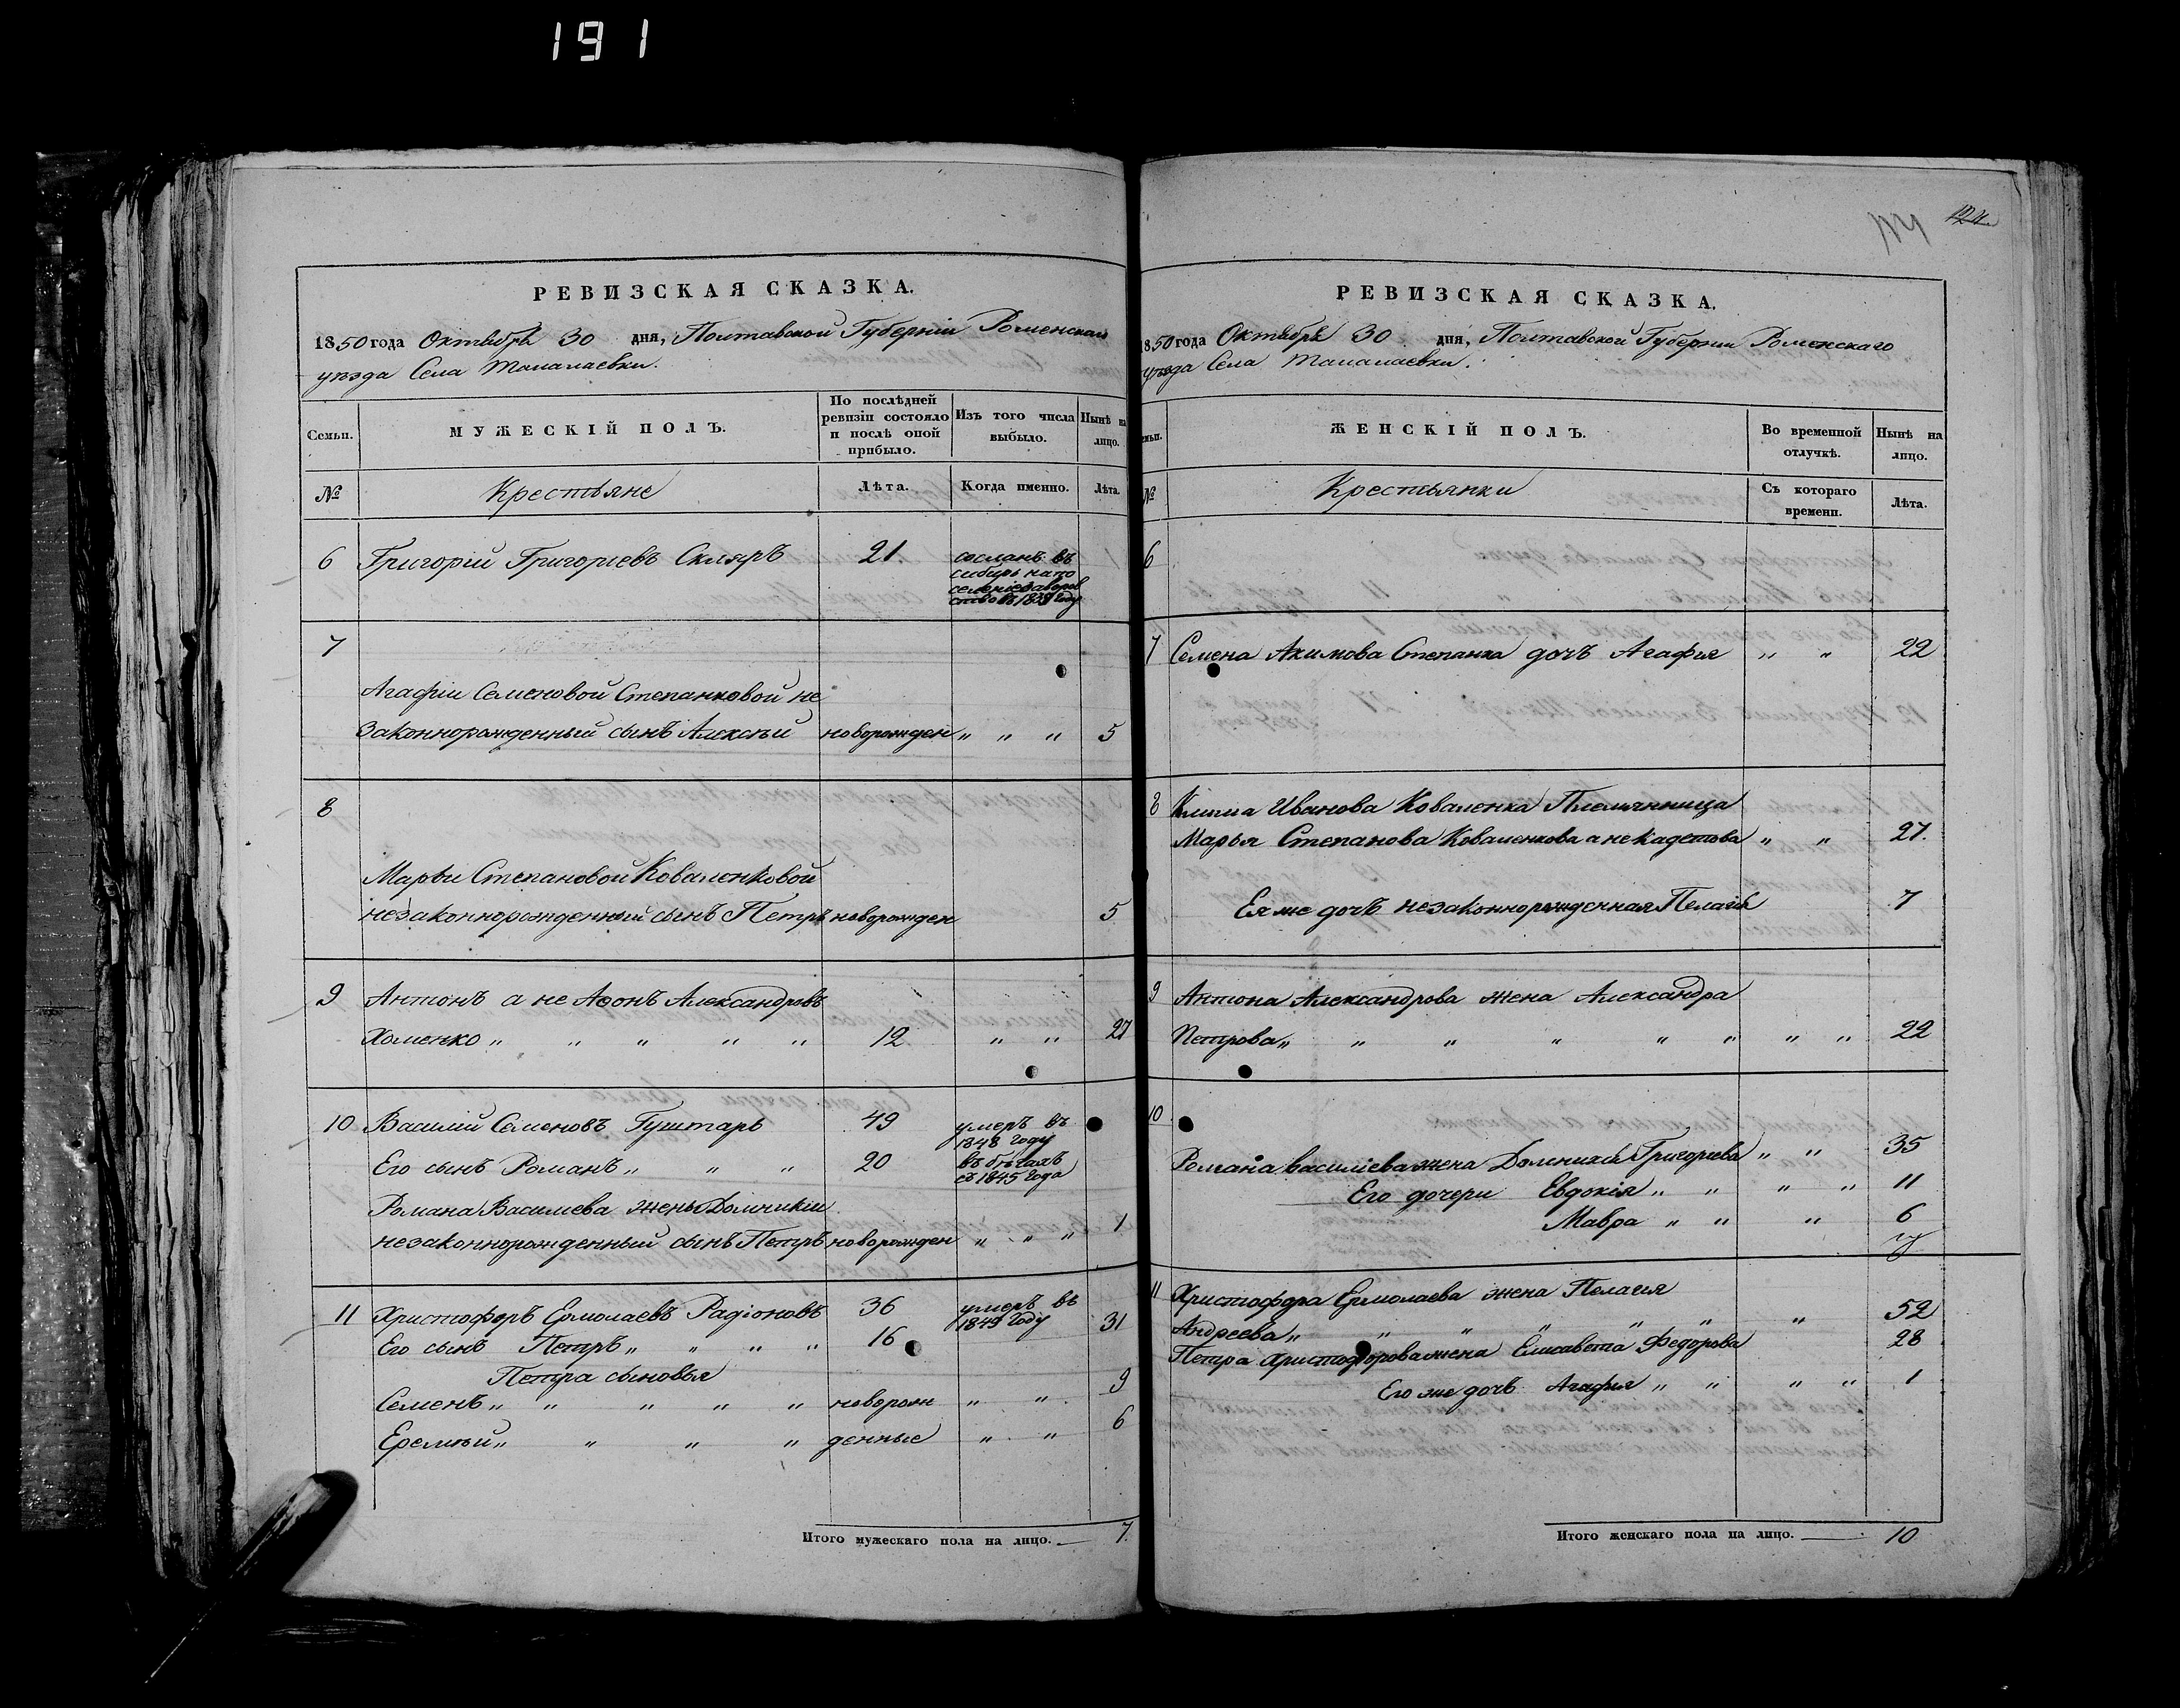 191
РЕВИЗСКАЯ СКАЗКА.
1850 года Октября 30 дня, Полтавской Губерніи Роменскаго
уѣзда Села Талалаевки.
Семьи.
МУЖЕСКІЙ ПОЛЪ.
По послѣдней ревизіи состояло и послѣ оной прибыло.
Изъ того числа выбыло.
Нынѣ на лицо.
№
Крестьяне
Лѣта.
Когда именно.
Лѣта.
6 Григорій Григорьевъ Скляръ 21. сосланъ въ
сибирь на по
селеніе за воров
ство въ 1838 году
7
Агафіи Семеновой Степанковой не
законнорожденный сынъ Алексѣй новорожден „ „ „ 5
8
Марьи Степановой Коваленковой
незаконнорожденный сынъ Петръ новорожден 5
9 Антонъ а не Аѳонъ Александровъ
Хоменко „ „ „ „ „ 12 „ „ 27
10 Василій Семеновъ Гуштарь 49 умеръ въ
1848 году
Его сынъ Романъ „ „ „ 20 въ бѣгахъ
съ 1845 года
Романа Василіева жены Домникіи
незаконнорожденный сынъ Петръ новорожден „ „ „ 1
11 Христофоръ Ермолаевъ Радіоновъ 36 умеръ въ
1849 году
Его сынъ Петръ „ „ „ „ 16 31
Петра сыновья
Семенъ „ „ „ „ „ новорож „ „ 9
Еремѣй „ „ „ „ денные „ „ 6
Итого мужескаго пола на лицо. 7.
124
РЕВИЗСКАЯ СКАЗКА.
1850 года Октября 30 дня, Полтавской Губерніи Роменскаго
уѣзда Села Талалаевки.
ЖЕНСКІЙ ПОЛЪ.
Во временной отлучкѣ.
Нынѣ на лицо.
№
Крестьянки
Съ котораго времени.
Лѣта.
6
7 Семена Акимова Степанка дочь Агафія „ „ 22
8 Клима Иванова Коваленка Племянница
Марья Степанова Коваленкова а не Кадетова „ „ 27.
Ея же дочь незаконнорожденная Пелагія 7
9 Антона Александрова жена Александра
Петрова „ „ „ „ „ „ „ „ 22
10
Романа василіева жена Домникія Григорьева „ „ 35
Его дочери Евдокія „ „ „ „ 11
Мавра „ „ „ 6
11 Христофора Ермолаева жена Пелагія
Андреева „ „ „ „ „ „ „ 52
Петра христофорова жена Елисавета Федорова 28
Его же дочь Агафія „ „ „ „ 1
Итого женскаго пола на лицо. 10